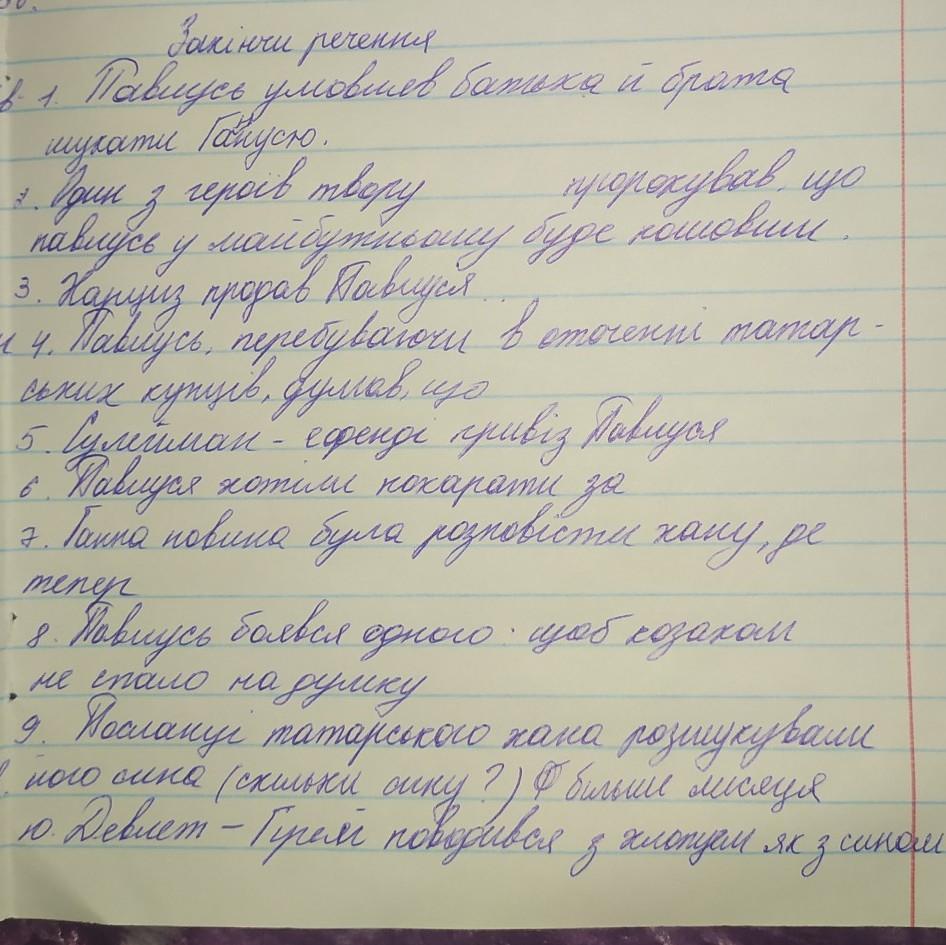 Закінчи речення
1. Павлусь умовляв батька й брата
шукати Ганусю.
2. Один з героїв твору пророкував, що
павлусь у майбутньому буде кошовим.
3. Харциз продав Павлуся...
4. Павлусь, перебуваючи в оточенні татар-
ських купців, думав, що
5. Сулейман - ефенді привіз Павлуся
6. Павлуся хотіли покарати за
7. Ганна повина була розповісти хану, де
тепер
8. Павлусь боявся одного: щоб козакам
не спало на думку
9. Посланці татарського хана розшукували
його сина (скільки часу?) більше місяця
10. Девлет - Гірей поводився з хлопцем як з сином